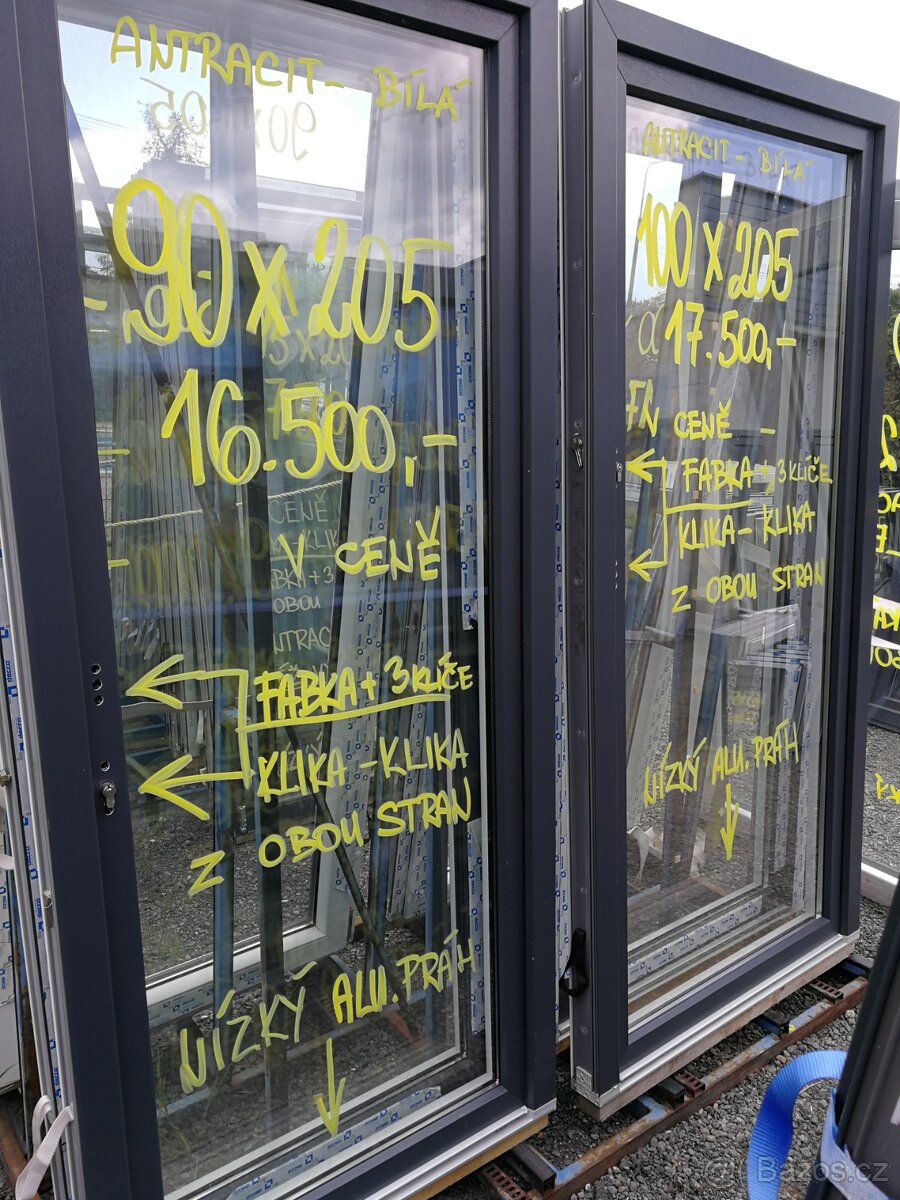 ANTRACIT - BÍLÁ
90 x 205
16.500,-
V CENĚ
FABKA + 3 KLÍČE
KLIKA - KLIKA
Z OBOU STRAN
NÍZKÝ ALU. PRÁH
ANTRACIT - BÍLÁ
100 x 205
17.500,-
CENĚ
FABKA + 3 KLÍČE
KLIKA - KLIKA
Z OBOU STRAN
NÍZKÝ ALU. PRÁH
Bazos.cz